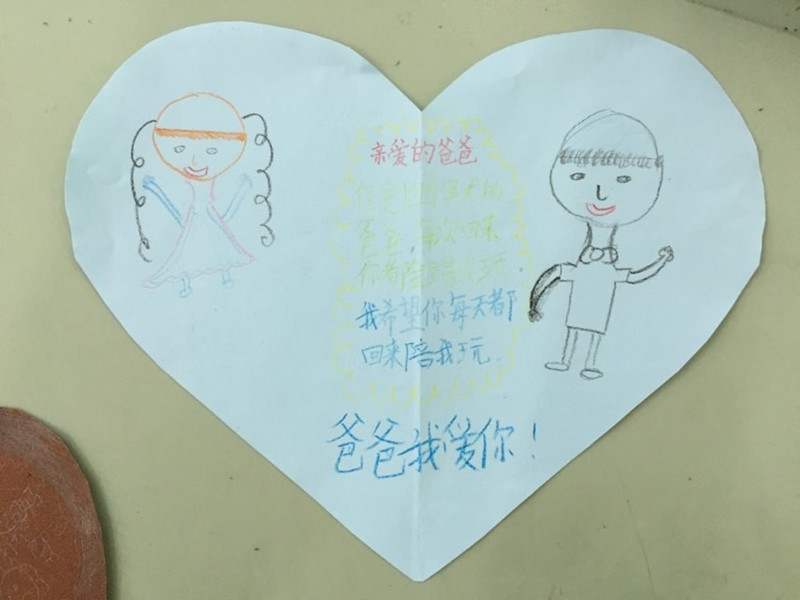 亲爱的爸爸
爸爸,每次回来
你都陪我玩.
我希望你每天都
回来陪我玩.
爸爸我爱你!